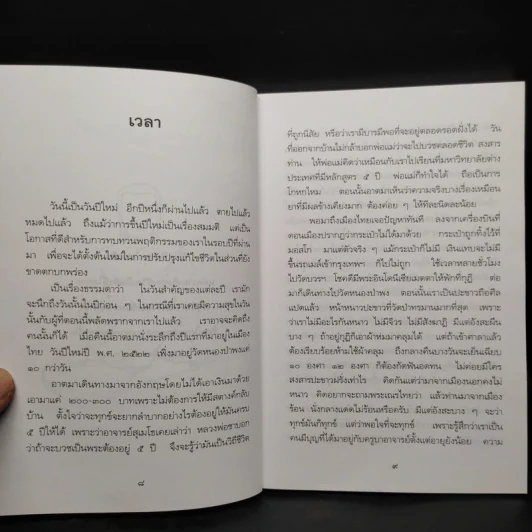 เวลา
วันนี้เป็นวันปีใหม่ อีกปีหนึ่งก็ผ่านไปแล้ว ตายไปแล้ว
หมดไปแล้ว ถึงแม้ว่าการขึ้นปีใหม่เป็นเรื่องสมมติ แต่เป็น
โอกาสที่ดีสำหรับการทบทวนพฤติกรรมของเราในรอบปีที่ผ่าน
มา เพื่อจะได้ตั้งต้นใหม่ในการปรับปรุงแก้ไขชีวิตในส่วนที่ยัง
ขาดตกบกพร่อง
เป็นเรื่องธรรมดาว่า ในวันสำคัญของแต่ละปี เรามัก
จะนึกถึงวันนั้นในปีก่อน ๆ ในกรณีที่เราเคยมีความสุขในวัน
นั้นกับผู้ที่ตอนนี้พลัดพรากจากเราไปแล้ว เราอาจจะคิดถึง
คนนั้นก็ได้ เมื่อคืนนี้อาตมานั่งระลึกถึงปีแรกที่มาอยู่ในเมือง
ไทย วันปีใหม่ปี พ.ศ. ๒๕๒๒ เพิ่งมาอยู่วัดหนองป่าพงแค่
๑๐ กว่าวัน
อาตมาเดินทางมาจากอังกฤษโดยไม่ได้เอาเงินมาด้วย
เอามาแค่ ๒๐๐-๓๐๐ บาทเพราะไม่ต้องการให้มีสตางค์กลับ
บ้าน ตั้งใจว่าจะทุกข์จะยากลำบากอย่างไรต้องอยู่ให้มันครบ
๕ ปีให้ได้ เพราะว่าอาจารย์สุเมโธเคยเล่าว่า หลวงพ่อชาบอก
ว่าถ้าจะบวชเป็นพระต้องอยู่ ๕ ปี จึงจะรู้ว่ามันเป็นวิถีชีวิต
๘
ที่ถูกนิสัย หรือว่าเรามีบารมีพอที่จะอยู่ตลอดรอดฝั่งได้ วัน
ที่ออกจากบ้านไม่กล้าบอกพ่อแม่ว่าจะไปบวชตลอดชีวิต สงสาร
ท่าน ให้พ่อแม่คิดว่าเหมือนกับเราไปเรียนที่มหาวิทยาลัยต่าง
ประเทศที่มีหลักสูตร ๕ ปี พ่อแม่ก็ทำใจได้ ถือเป็นการ
โกหกไหม ตอนนั้นอาตมาเห็นว่าความจริงบางเรื่องเหมือน
ยาที่มีผลข้างเคียงมาก ต้องค่อย ๆ ให้ทีละนิดละน้อย
พอมาถึงเมืองไทยเจอปัญหาทันที ลงจากเครื่องบินที่
ดอนเมืองปรากฏว่ากระเป๋าไม่ได้มาด้วย กระเป๋าถูกทิ้งไว้ที่
มอสโก มาแต่ตัวจริง ๆ แม้กระเป๋าก็ไม่มี เงินแทบจะไม่มี
ขึ้นรถเมล์เข้ากรุงเทพฯ ก็ไปไม่ถูก ใช้เวลาหลายชั่วโมง
ไปวัดบวรฯ โชคดีมีพระอินโดนีเซียเมตตาให้พักที่กุฏิ ต่อ
มาก็เดินทางไปวัดหนองป่าพง ตอนนั้นเราเป็นปะขาวถือศีล
แปดแล้ว หน้าหนาวปะขาวที่วัดป่าทรมานมากที่สุด เพราะ
ว่าเราไม่มีอะไรกันหนาว ไม่มีจีวร ไม่มีสังฆาฏิ มีแต่อังสะผืน
บาง ๆ ถ้าอยู่กุฏิก็เอาผ้าห่มคลุมได้ แต่ถ้าเข้าศาลาแล้ว
ต้องเรียบร้อยห้ามใช้ผ้าคลุม ถึงกลางคืนบางวันจะเย็นเฉียบ
๑๐ องศา ๑๒ องศา ก็ต้องกัดฟันอดทน ไม่ค่อยมีใคร
สงสารปะขาวฝรั่งเท่าไร คิดกันแต่ว่ามาจากเมืองนอกคงไม่
หนาว คิดอยากจะถามพระเณรไทยว่า แล้วท่านมาจากเมือง
ร้อน นั่งกลางแดดไม่ร้อนหรือครับ มีแต่อังสะบาง ๆ จะว่า
ทุกข์มันก็ทุกข์ แต่ว่าพอใจที่จะทุกข์ เพราะรู้สึกว่าเราเป็น
คนมีบุญที่ได้มาอยู่กับครูบาอาจารย์ตั้งแต่อายุยังน้อย ความ
๙